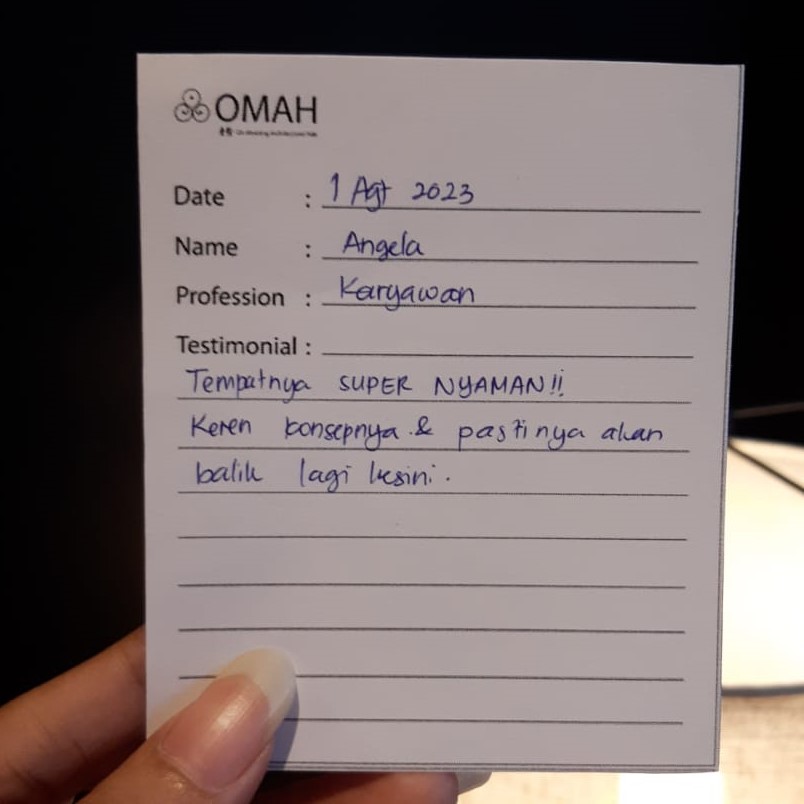 OMAH
Date : 1 Agt 2023
Name : Angela
Profession : Karyawan
Testimonial :
Tempatnya SUPER NYAMAN!!
Keren konsepnya & pastinya akan
balik lagi kesini.